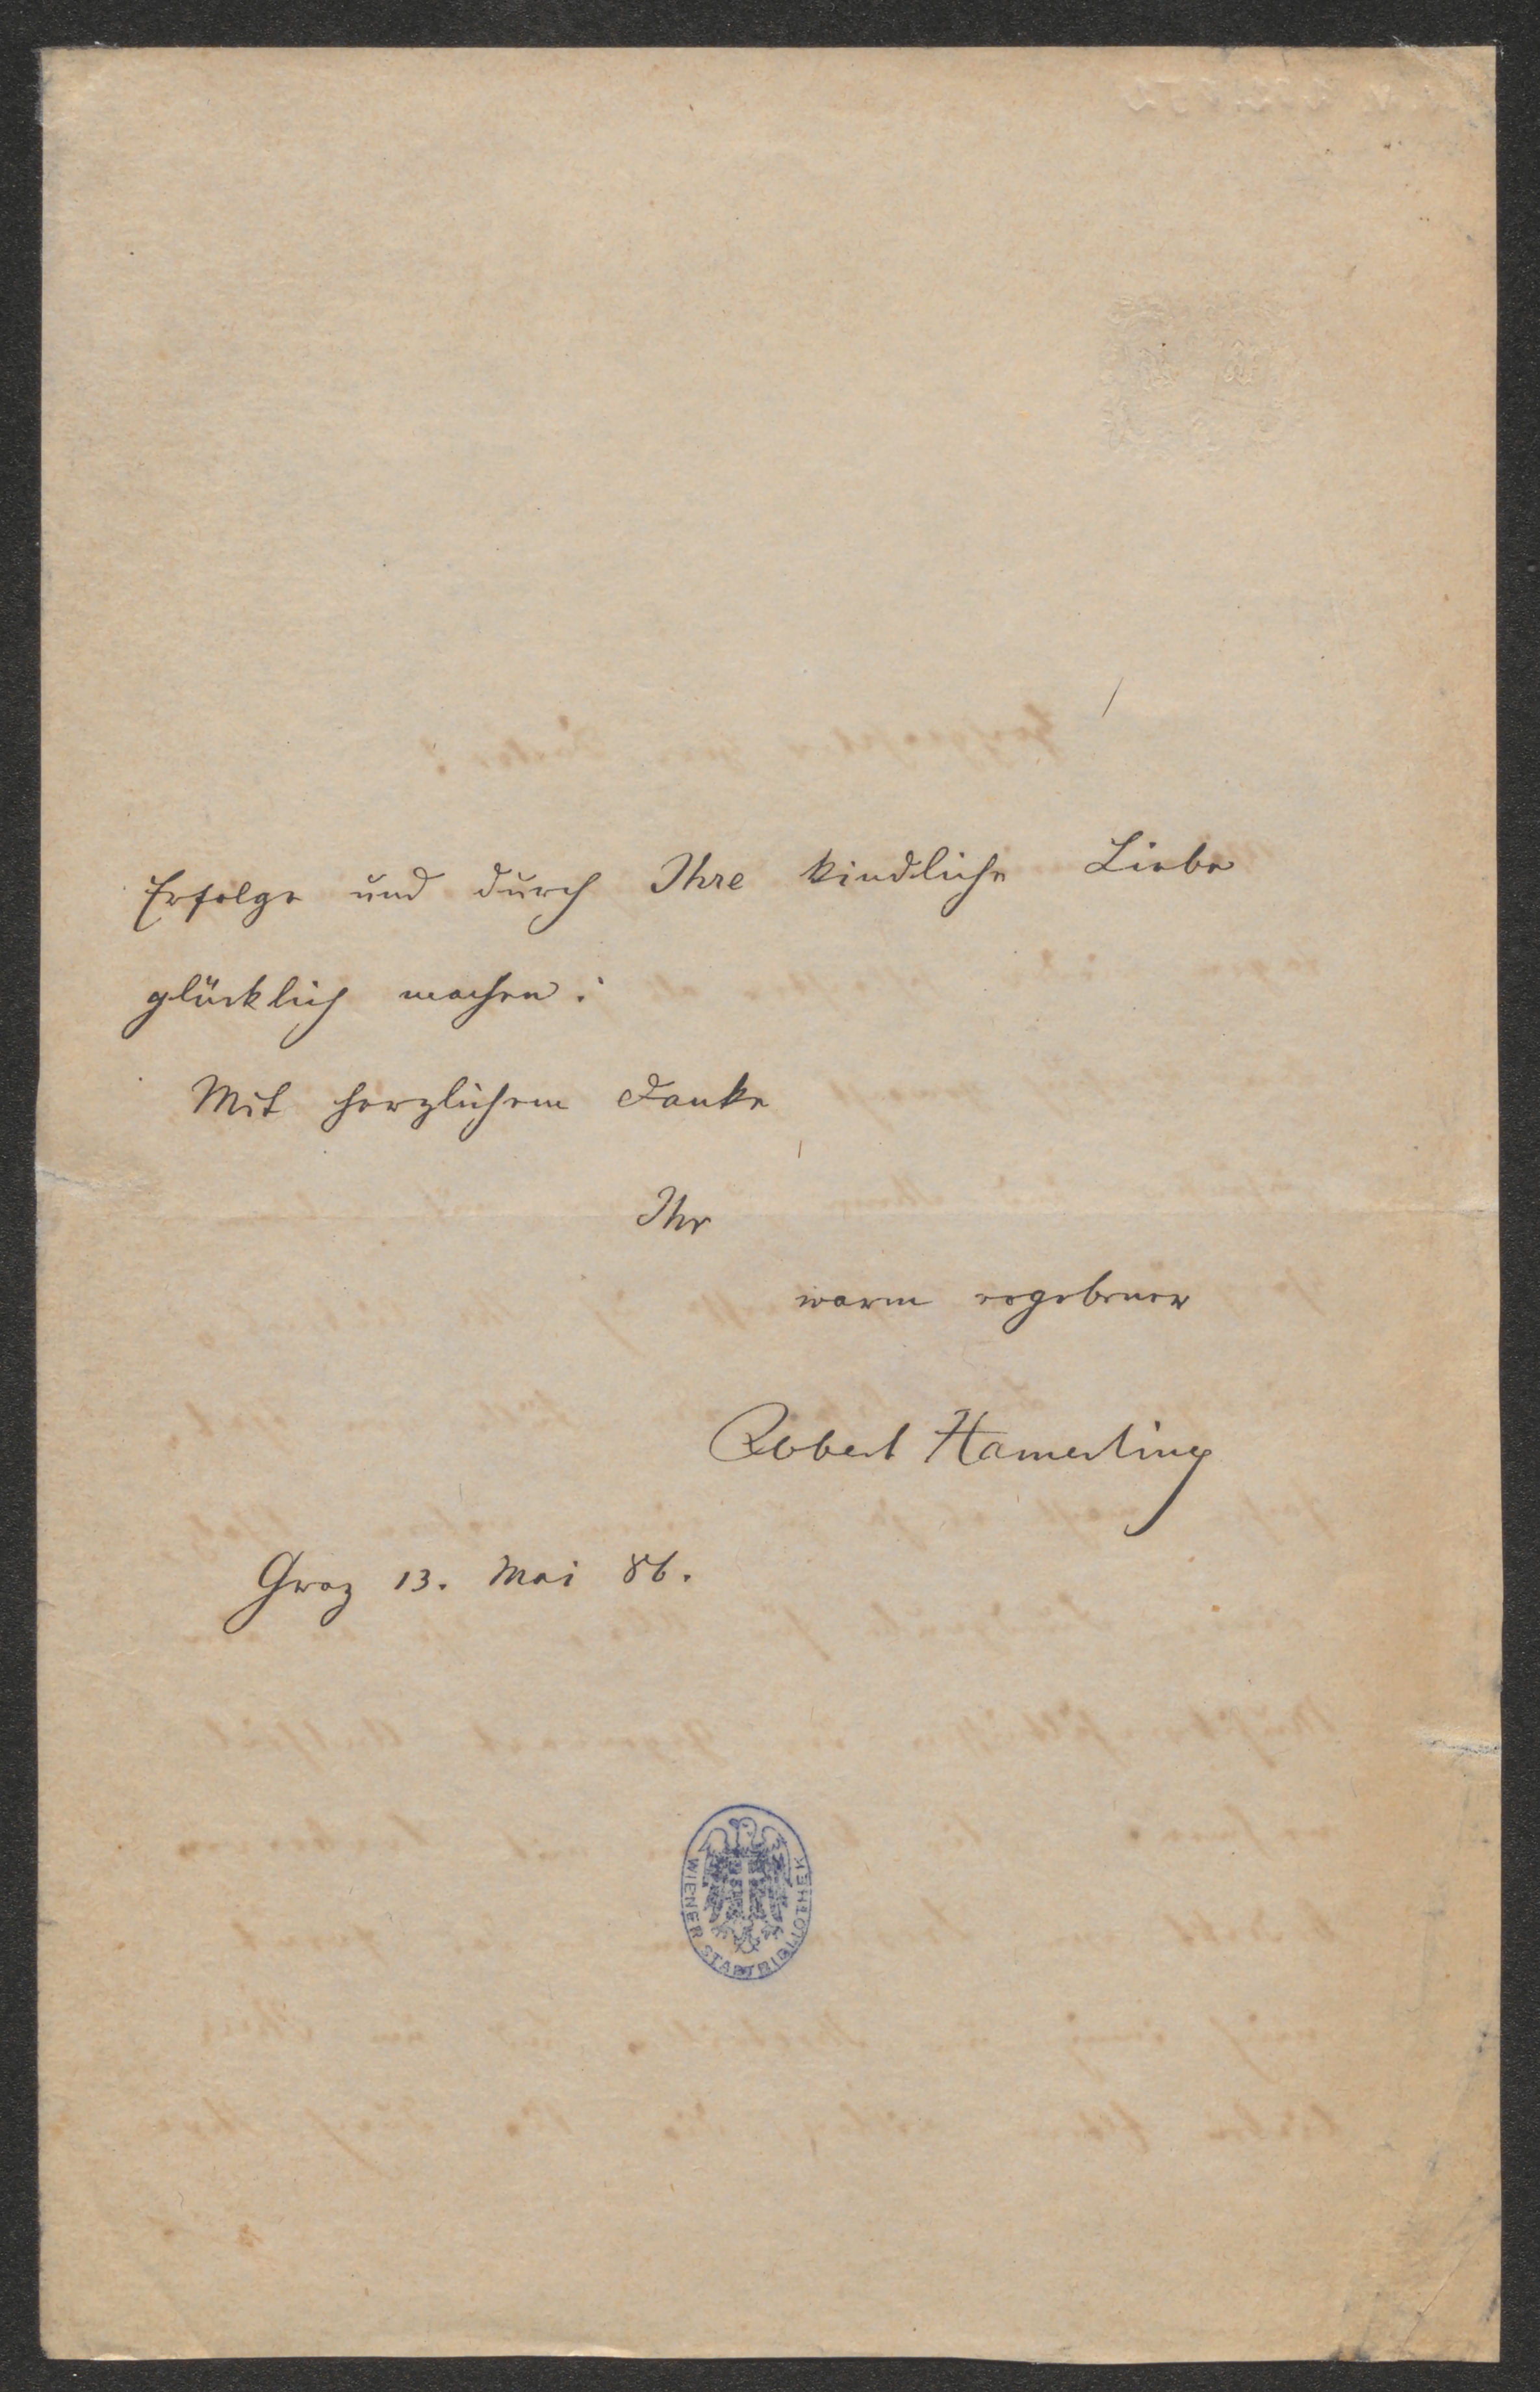 Erfolge und durch Ihre kindliche Liebe
glücklich machen!
Mit herzlichem Danke
Ihr
warm ergebener
Robert Hamerling
Graz 13. Mai 86.
WIENER STADTBIBLIOTHEK